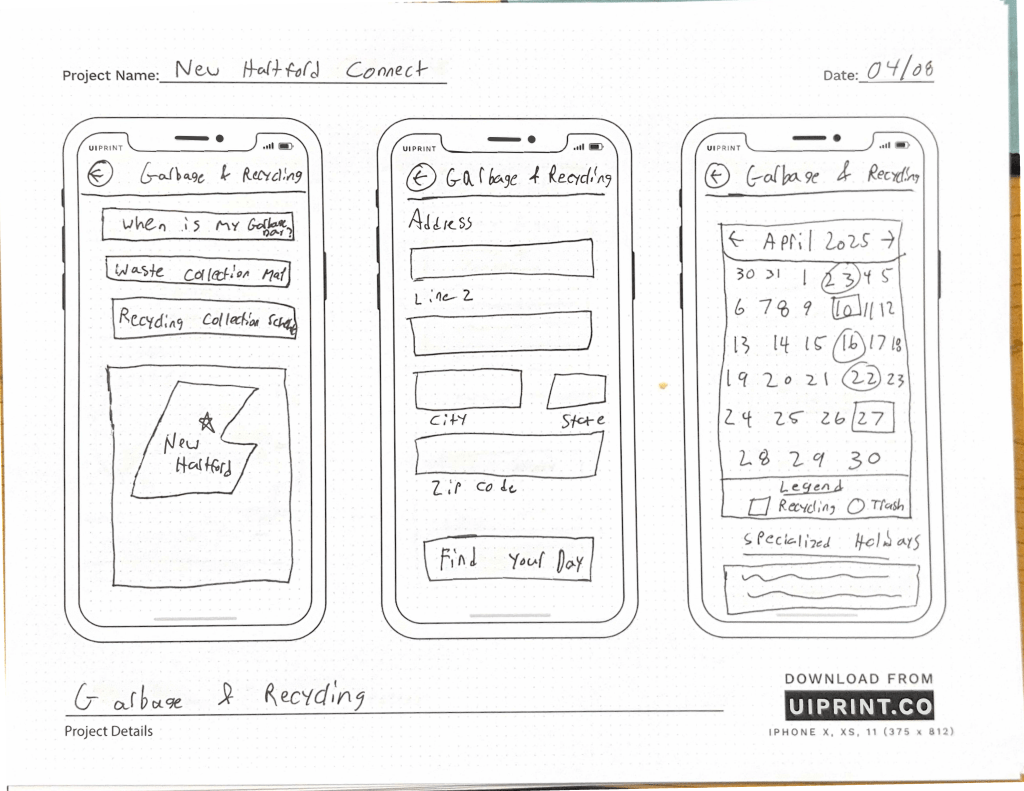 Project Name: New Hartford Connect
Date: 04/08
UIPRINT
Garbage & Recycling
When is my Garbage Day?
Waste Collection Map
Recycling Collection
New Hartford
UIPRINT
Garbage & Recycling
Address
Line 2
City
State
Zip Code
Find Your Day
UIPRINT
Garbage & Recycling
← April 2025 →
30 31 1 2 3 4 5
6 7 8 9 10 11 12
13 14 15 16 17 18
19 20 21 22 23
24 25 26 27
28 29 30
Legend
Recycling Trash
Specialized Holidays
Garbage & Recycling
Project Details
DOWNLOAD FROM
UIPRINT.CO
IPHONE X, XS, 11 (375 x 812)